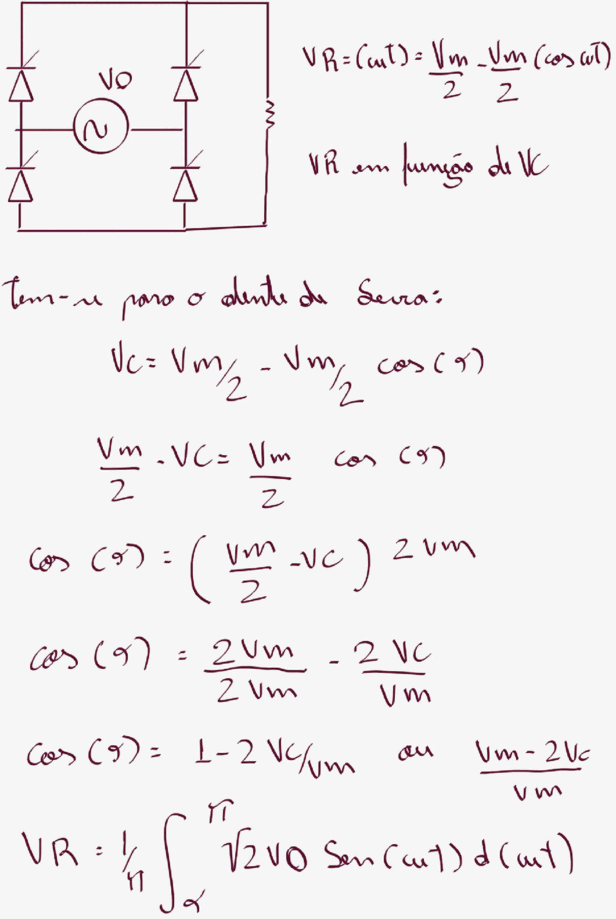 VO
VR=(ωt)=Vm/2-Vm/2(cos ωt)
VR em função de VC
Tem-se para o dente de Serra:
Vc=Vm/2-Vm/2 cos(α)
Vm/2-VC=Vm/2 cos(α)
cos(α)=(Vm/2-VC)2Vm
cos(α)=2Vm/2Vm-2VC/Vm
cos(α)=1-2Vc/Vm ou Vm-2Vc/Vm
VR=1/π∫_α^π √2VO Sen(ωt)d(ωt)